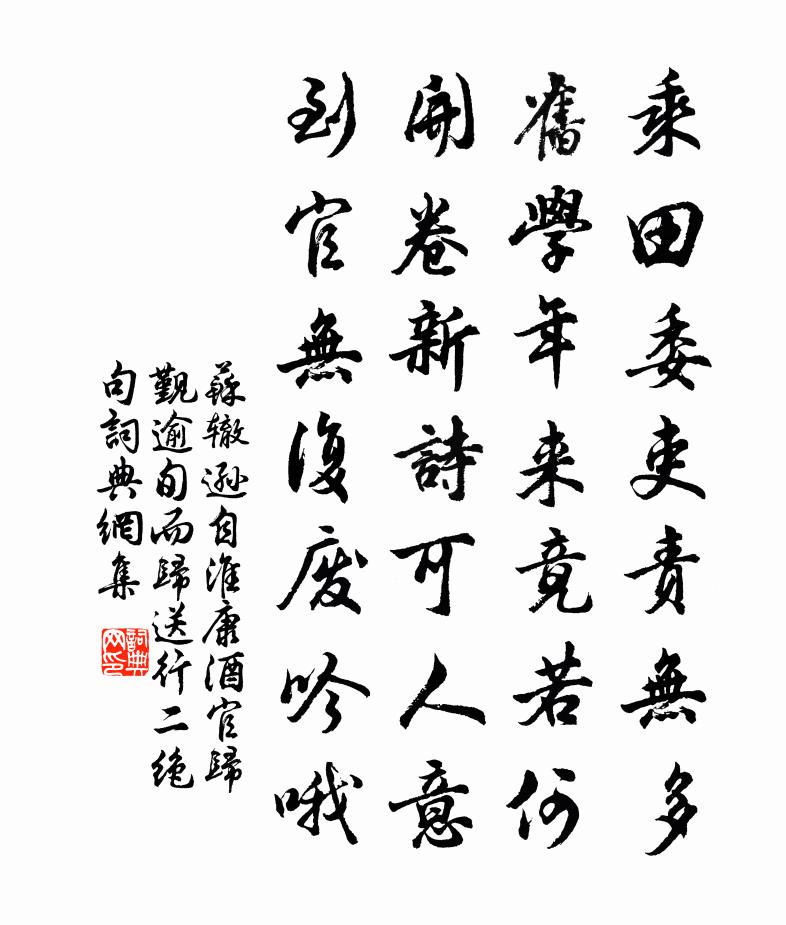 乘田委吏責無多
舊學年来竟若何
開卷新詩可人意
到官無復廢吟哦
蘇辙遜自淮康酒官歸
觐逾旬而歸送行二绝
句詞典網集
詞典
网印